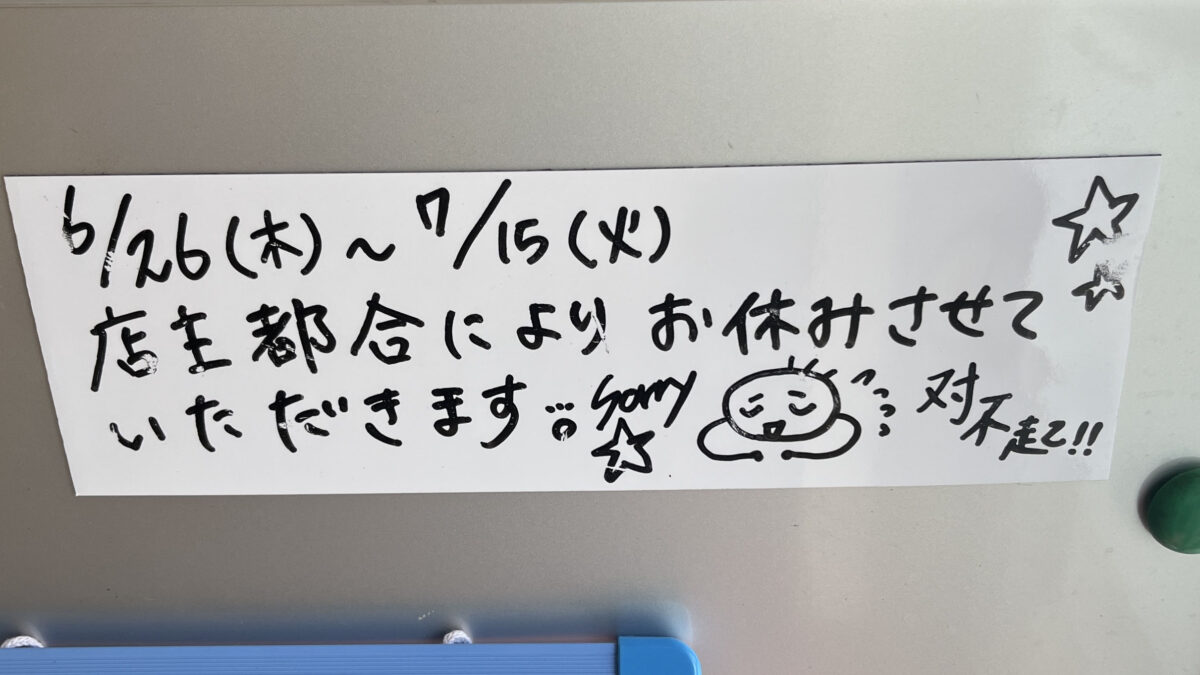 6/26(木)～7/15(火)
店主都合によりお休みさせて
いただきます。 sorry 対不起!!